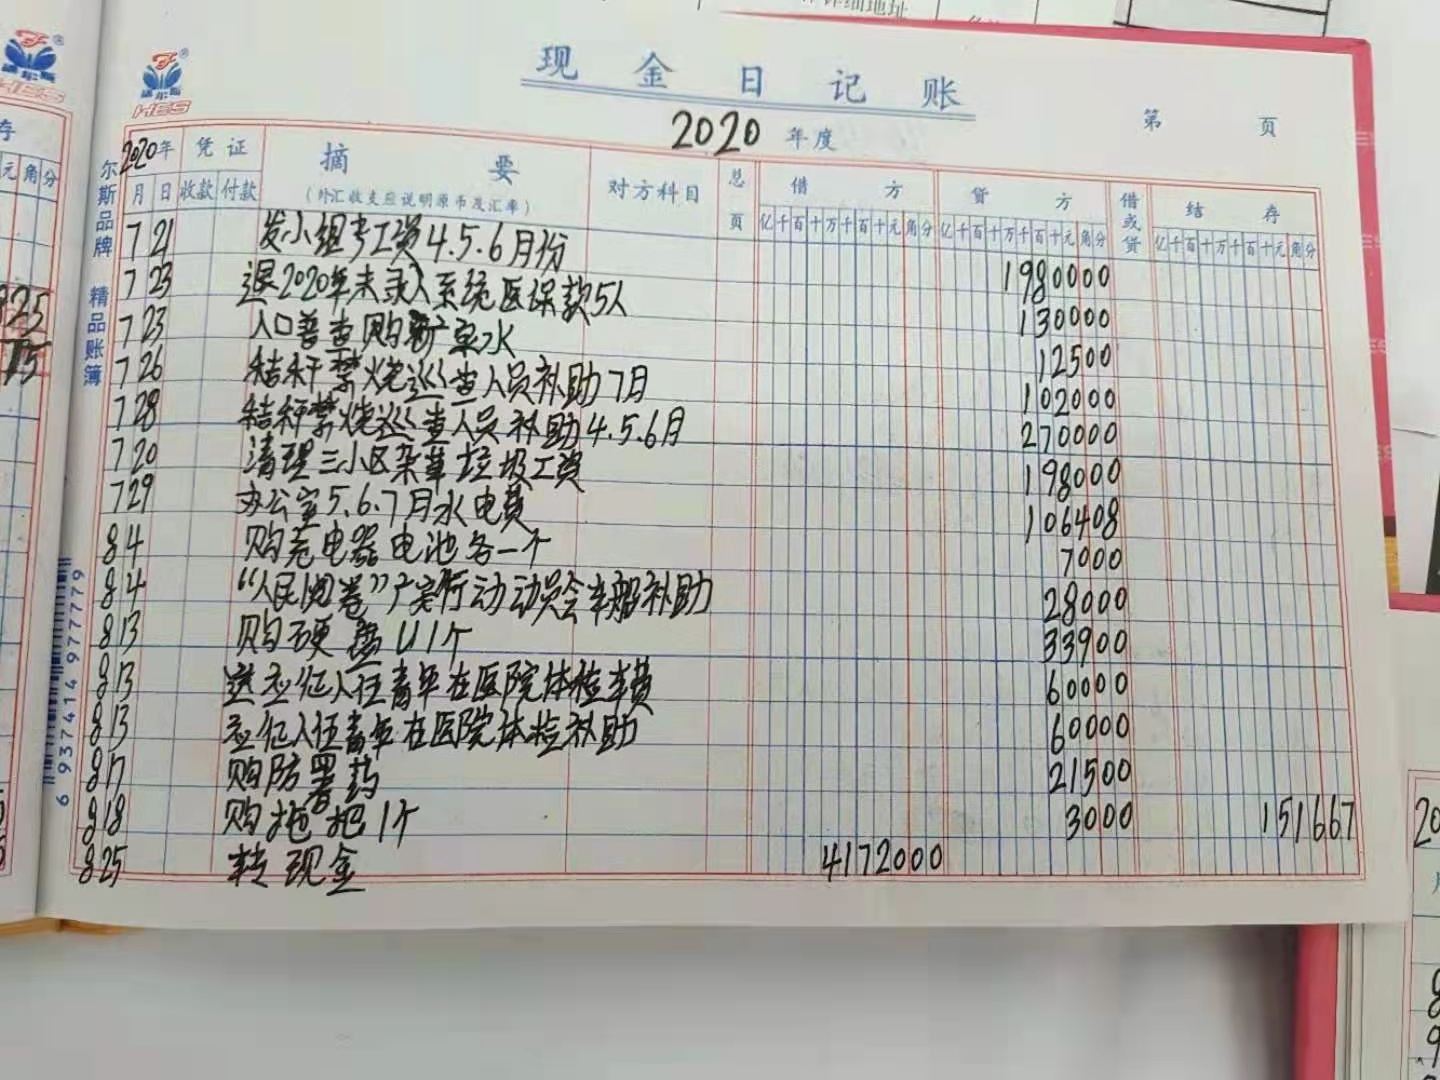 详细地址
HES
HES
现金日记账
2020 年度
第 页
尔斯品牌 精品账簿
6 937414 977779
2020年 凭证 摘要 对方科目 总页 借方 贷方 借或贷 结存
月 日 收款 付款 (外汇收支应说明原币及汇率) 亿千百十万千百十元角分 亿千百十万千百十元角分 亿千百十万千百十元角分
7 21 发小组考工资4.5.6月份 1980000
7 23 退2020年未录入系统医保款5人 130000
7 23 人口普查购矿泉水 12500
7 26 秸秆禁烧巡查人员补助7月 102000
7 28 秸秆禁烧巡查人员补助4.5.6月 270000
7 20 清理三小区杂草垃圾工资 198000
7 29 办公室5.6.7月水电费 106408
8 4 购充电器电池各一个 7000
8 4 “人民阅卷”广案行动动员会车船补助 28000
8 13 购硬盘U1个 33900
8 13 送应征入伍青年在医院体检车费 60000
8 13 应征入伍青年在医院体检补助 60000
8 17 购防署药 21500
8 18 购拖把1个 3000 151667
8 25 转现金 4172000